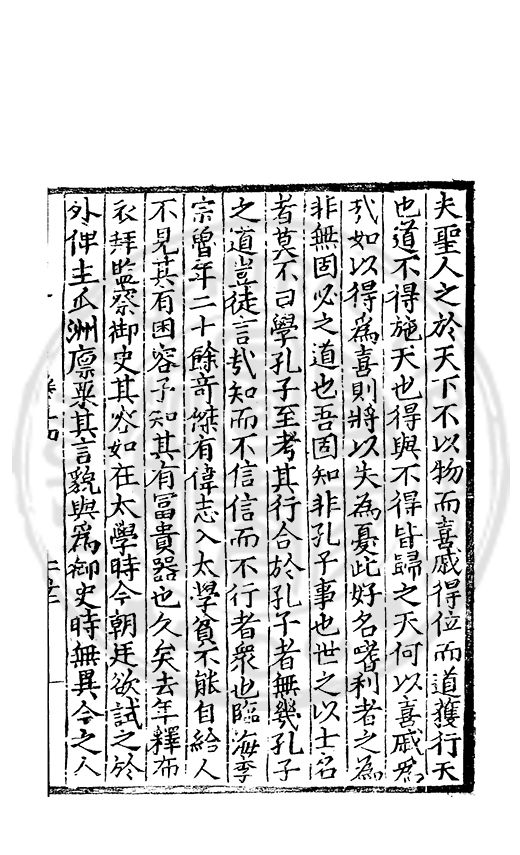 夫聖人之於天下不以物而喜戚得位而道獲行天
也道不得施天也得與不得皆歸之天何以喜戚爲
㢤如以得爲喜則將以失為憂此好名嗜利者之為
非無固必之道也吾固知非孔子事也世之以士名
者莫不曰學孔子至考其行合於孔子者無幾孔子
之道豈徒言㢤知而不信信而不行者衆也臨海季
宗魯年二十餘竒傑有偉志入太學貧不能自給人
不見其有困容予知其有冨貴器也久矣去年釋布
衣拜監察御史其容如在太學時今朝廷欲試之於
外俾主瓜洲廪粟其言貌與爲御史時無異今之人